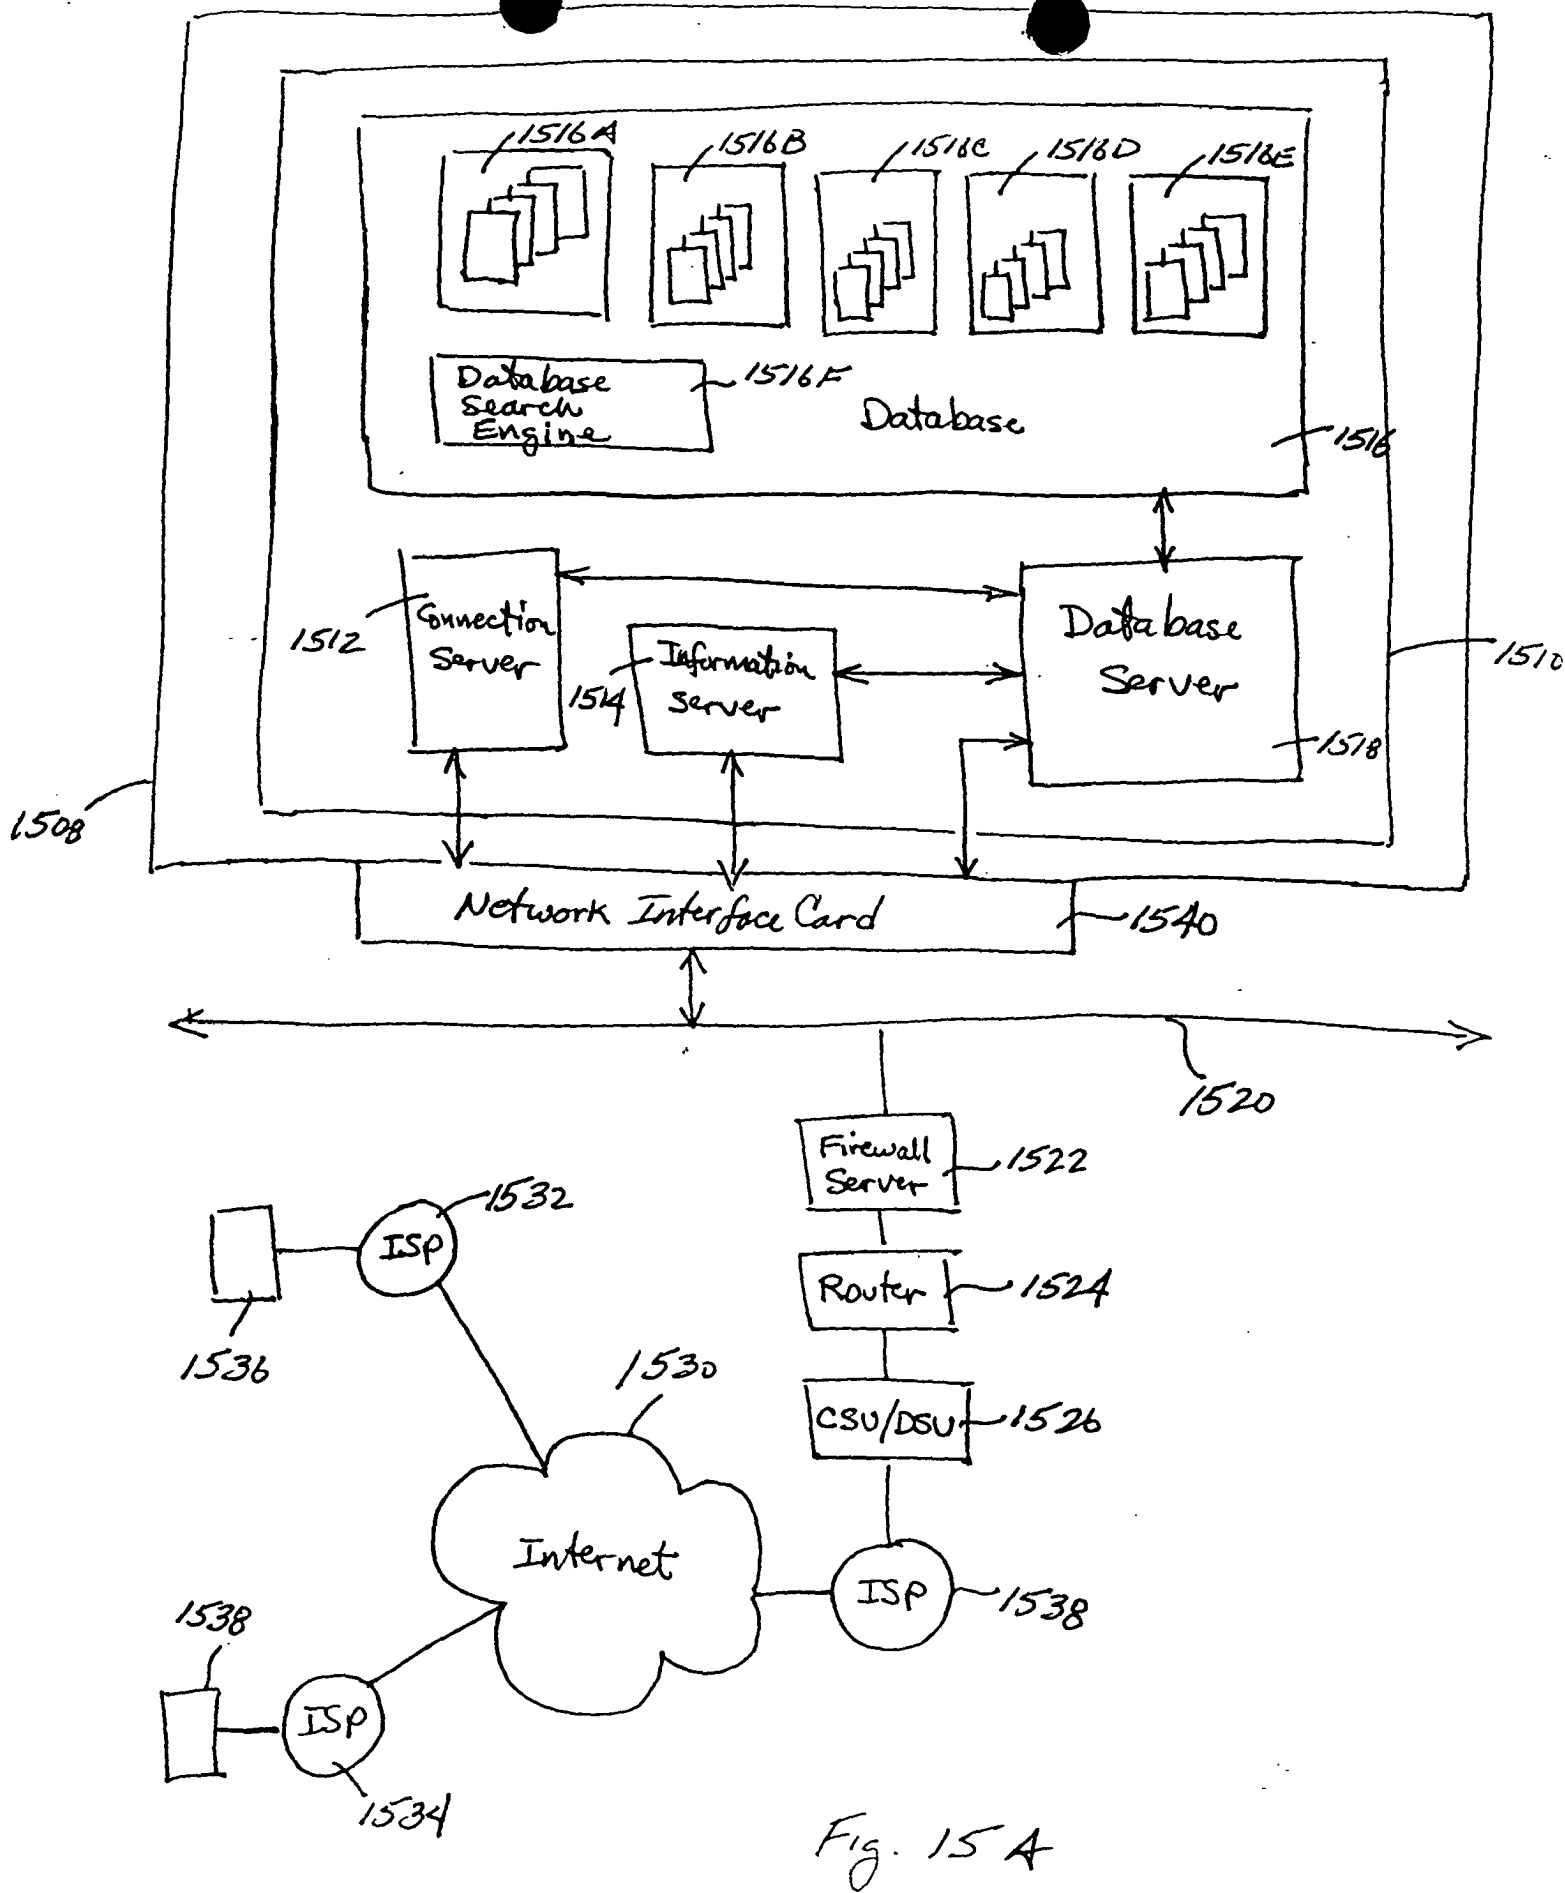 1516A
1516B
1516C
1516D
1516E
Database
Search
Engine
1516F
Database
1516
1512
Connection
Server
1514
Information
Server
Database
Server
1518
1510
1508
Network Interface Card
1540
1520
Firewall
Server
1522
ISP
1532
1536
Router
1524
1530
CSU/DSU
1526
Internet
ISP
1538
1538
ISP
1534
Fig. 15A